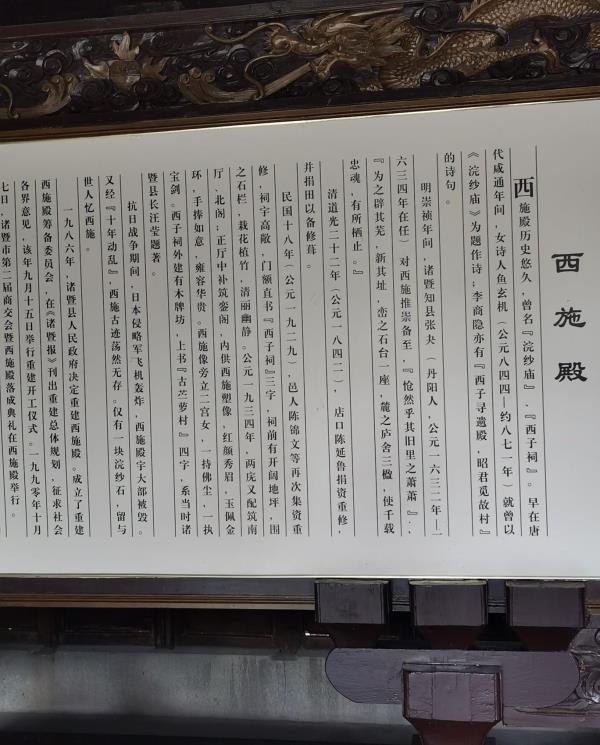 西施殿
西施殿历史悠久，曾名『浣纱庙』、『西子祠』。早在唐
代咸通年间，女诗人鱼玄机（公元八四四—约八七一年）就曾以
《浣纱庙》为题作诗；李商隐亦有『西子寻遗殿，昭君觅故村』
的诗句。
明崇祯年间，诸暨知县张夬（丹阳人，公元一六三二年—一
六三四年在任）对西施推崇备至，『怆然乎其旧里之萧萧』，
『为之辟其芜，新其址，峦之石台一座，麓之庐舍三楹，使千载
忠魂，有所栖止。』
清道光二十二年（公元一八四二），店口陈延鲁捐资重修，
并捐田以备修葺。
民国十八年（公元一九二九），邑人陈锦文等再次集资重
修，祠宇高敞，门额直书『西子祠』三字，祠前有开阔地坪，围
之石栏，栽花植竹，清丽幽静。公元一九三四年，两庑又配筑南
厅、北阁；正厅中补筑銮阁，内供西施塑像，红颜秀眉，玉佩金
环，手捧如意，雍容华贵。西施像旁立二宫女，一持佛尘，一执
宝剑。西子祠外建有木牌坊，上书『古苎萝村』四字，系当时诸
暨县长汪莹题著。
抗日战争期间，日本侵略军飞机轰炸，西施殿宇大部被毁。
又经『十年动乱』，西施古迹荡然无存。仅有一块浣纱石，留与
世人忆西施。
一九八六年，诸暨县人民政府决定重建西施殿。成立了重建
西施殿筹备委员会，在《诸暨报》刊出重建总体规划，征求社会
各界意见，该年九月十五日举行重建开工仪式。一九九零年十月
七日，诸暨市第二届商交会暨西施殿落成典礼在西施殿举行。